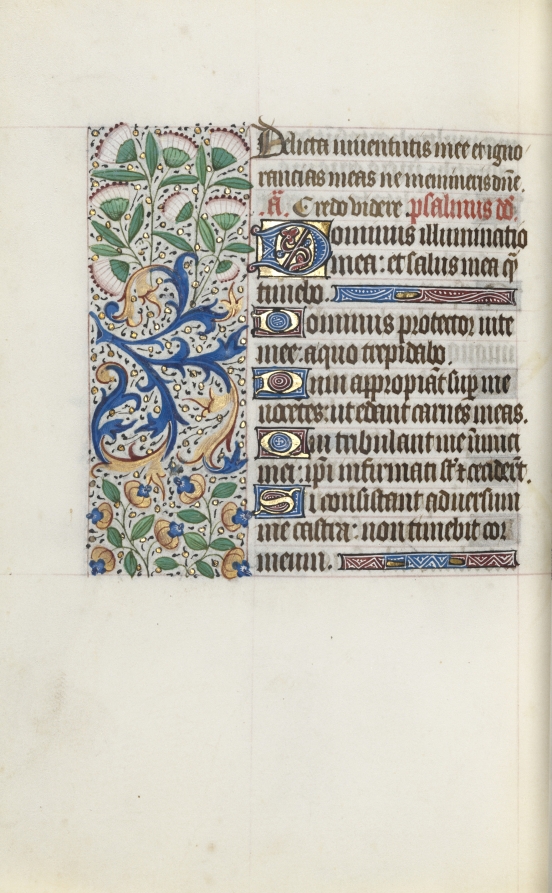 Delicta iuuentutis mee et igno
rancias meas ne memineris dñe.
.Ã. Credo videre psalmus dd̃.
Dominus illuminatio
mea: et salus mea q̃
timebo.
Dominus protector vite
mee: a quo trepidabo.
Dum appropiãt sup̱ me
nocẽtes: ut edant carnes meas.
Qui tribulant me inimici
mei: ip̃i infirmati sũt ⁊ ceciderũt.
Si consistant adversum
me castra: non timebit cor
meum.